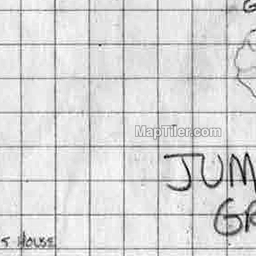 G
MapTiler.com
JUM
GR
S HOUSE